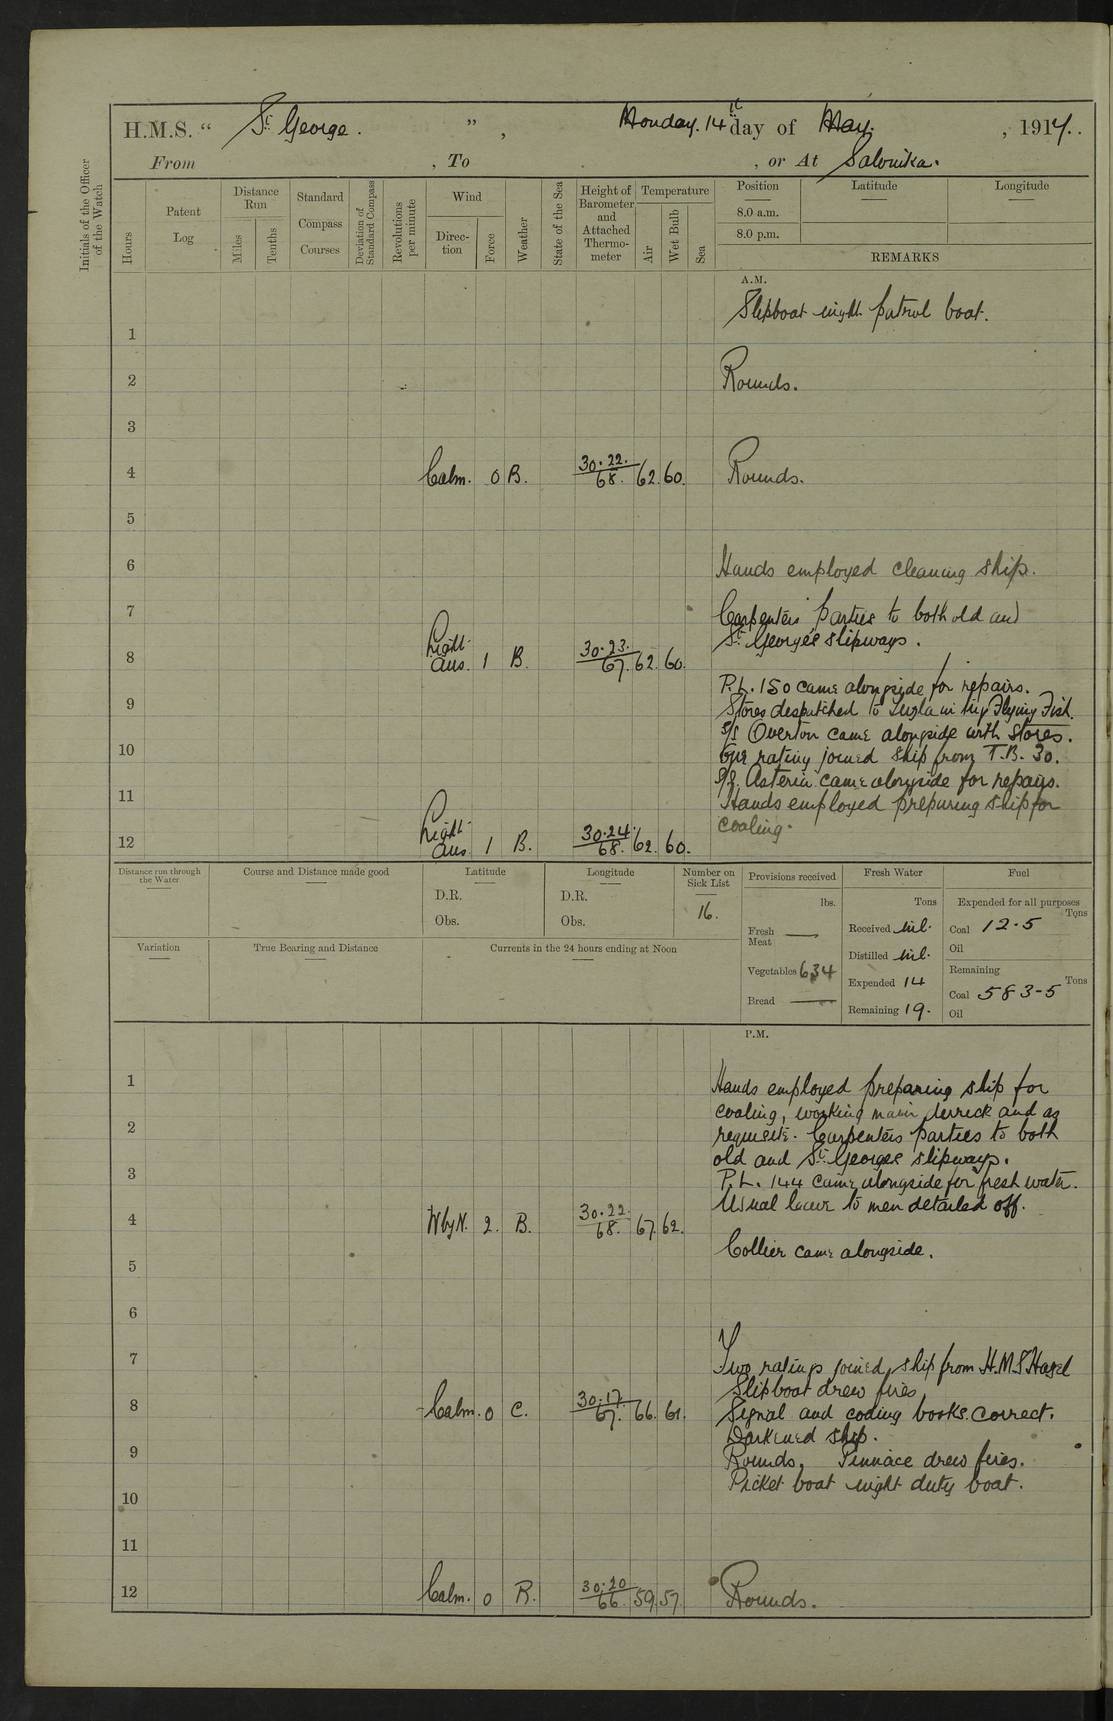 H.M.S. “ St George. ” , Monday. 14th day of May. , 1917.
From , To , or At Salonika.
Initials of the Officer of the Watch
Hours
Patent Log
Distance Run
Miles
Tenths
Standard Compass Courses
Deviation of Standard Compass
Revolutions per minute
Wind
Direction
Force
Weather
State of the Sea
Height of Barometer and Attached Thermometer
Temperature
Air
Wet Bulb
Sea
Position Latitude Longitude
8.0 a.m.
8.0 p.m.
REMARKS
A.M.
Slipboat night patrol boat.
1
2 Rounds.
3
4 Calm. 0 B. 30.22. 68. 62. 60. Rounds.
5
6 Hands employed cleaning ship.
7 Carpenters parties to both old and
St Georges slipways.
8 Light Aus. 1 B. 30.23. 67. 62. 60.
P.L. 150 came alongside for repairs.
9 Stores despatched to in Flying Fish.
S/S Overton came alongside with stores.
10 One rating joined ship from T.B. 30.
Asteria came alongside for repairs.
11 Hands employed preparing ship for
coaling.
12 Light Aus. 1 B. 30.24. 68. 62. 60.
Distance run through the Water
Course and Distance made good
Latitude
D.R.
Obs.
Longitude
D.R.
Obs.
Number on Sick List
16.
Provisions received
lbs.
Fresh Meat —
Vegetables 634
Bread —
Fresh Water
Tons
Received nil.
Distilled nil.
Expended 14
Remaining 19.
Fuel
Expended for all purposes
Tons
Coal 12.5
Oil
Remaining
Tons
Coal 583-5
Oil
Variation
True Bearing and Distance
Currents in the 24 hours ending at Noon
P.M.
1 Hands employed preparing ship for
coaling, working main derrick and as
2 requisite. Carpenters parties to both
old and St Georges slipways.
3 P.L. 144 came alongside for fresh water.
Usual leave to men detailed off.
4 W by N. 2. B. 30.22. 68. 67. 62.
Collier came alongside.
5
6
7 Two ratings joined ship from H.M.S Hazel
Slipboat drew fires
8 Calm. 0 C. 30.17. 67. 66. 61. Signal and coding books correct.
Darkened ship.
9 Rounds. Pinnace drew fires.
Picket boat night duty boat.
10
11
12 Calm. 0 B. 30.20 66. 59. 57. Rounds.